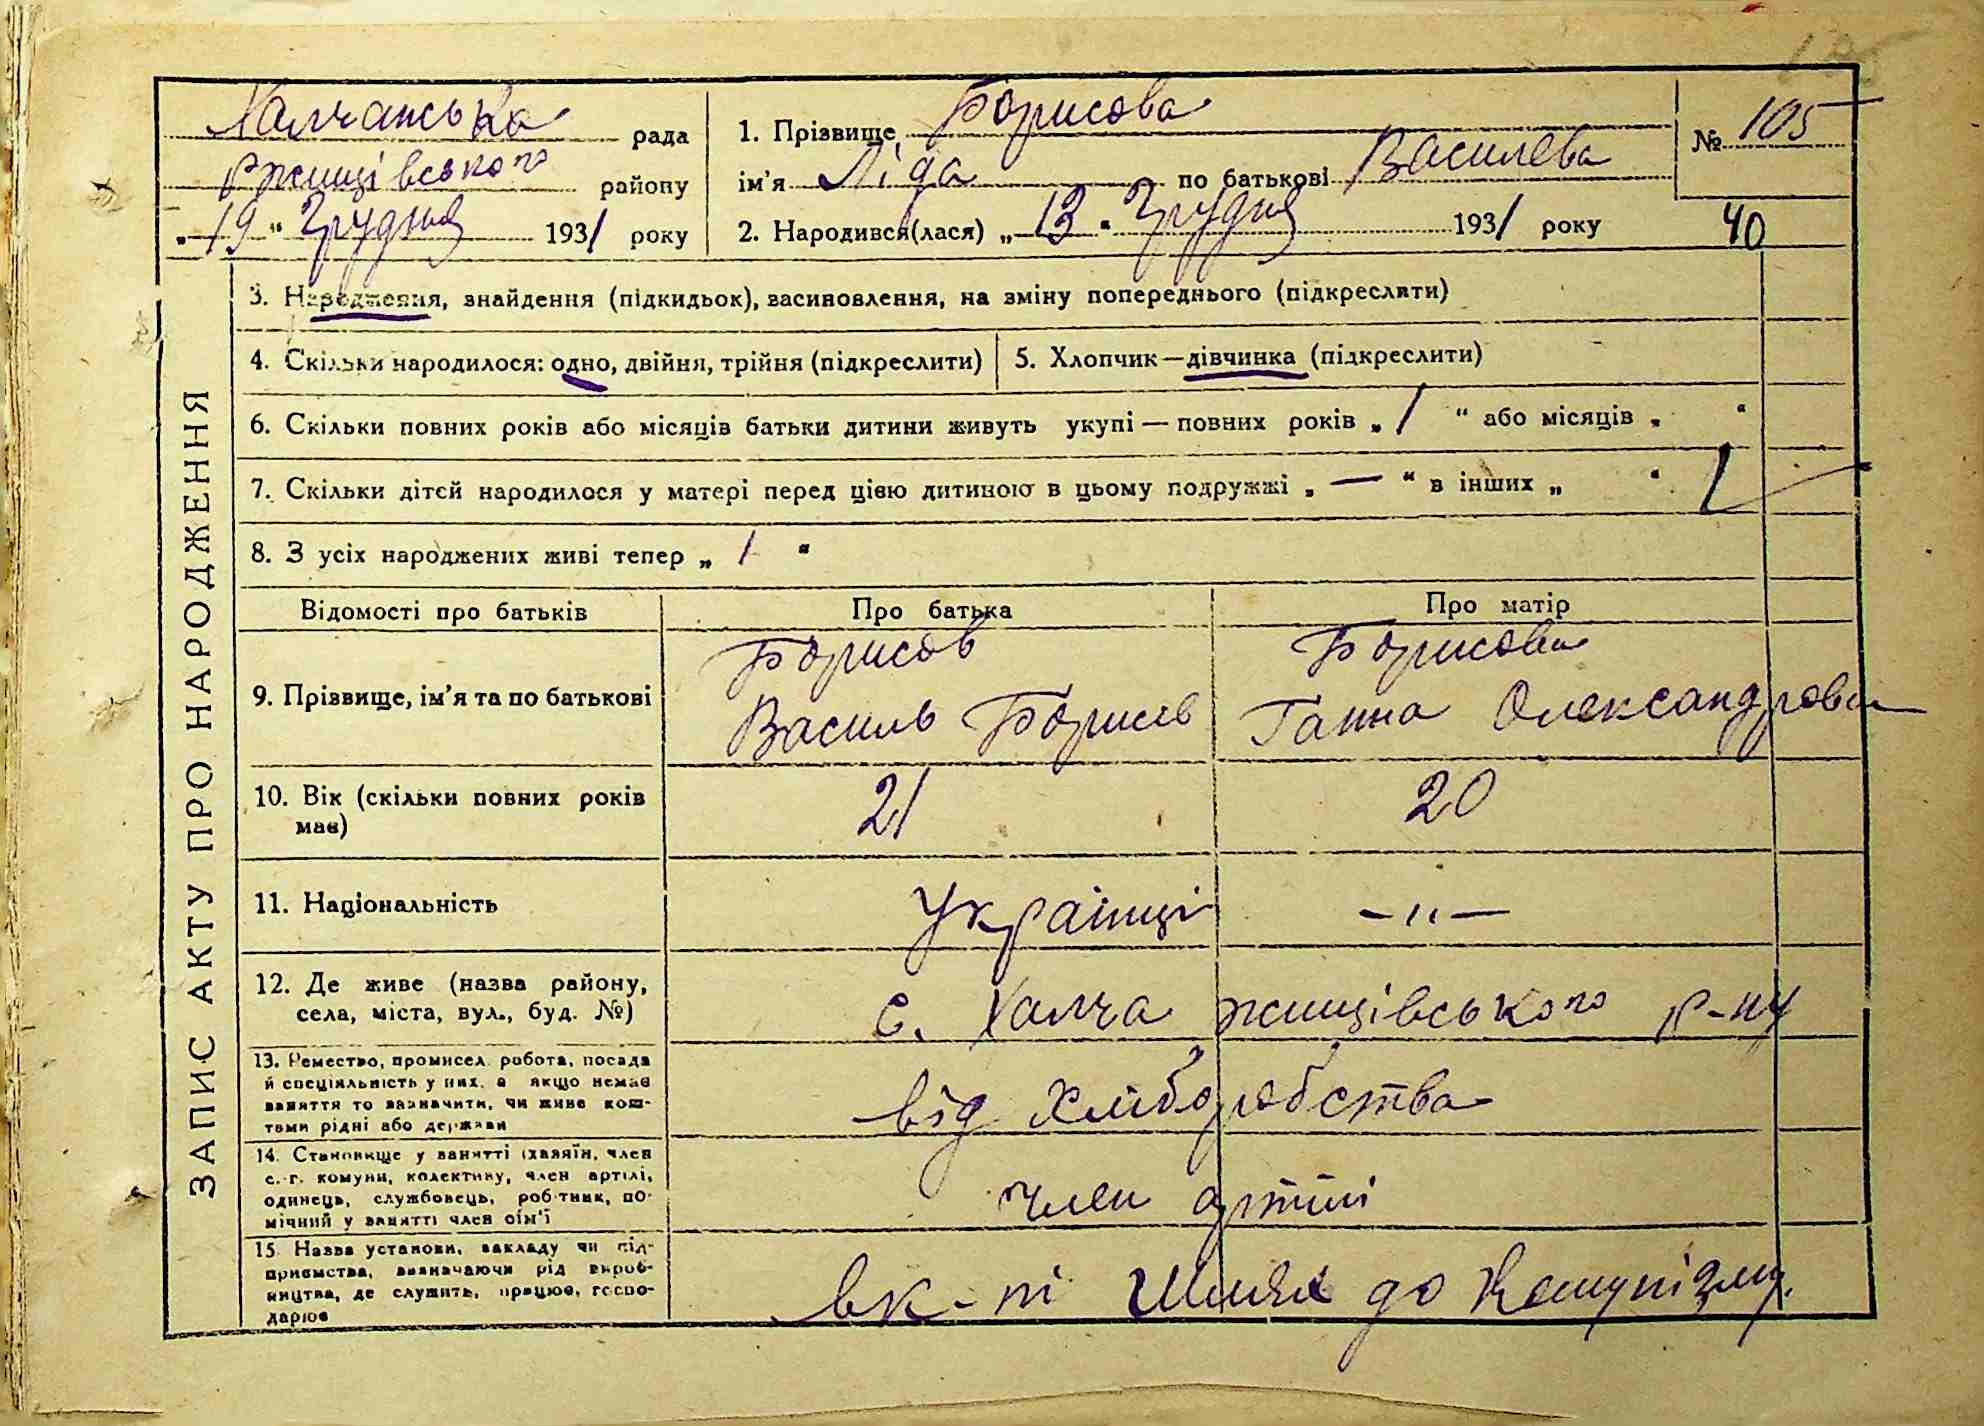 Халчанська рада
Ржищівського району
„19“ Грудня 1931 року
1. Прізвище Борисова
ім'я Ліда по батькові Василева
2. Народився(лася) „13“ Грудня 1931 року
№ 105
40
ЗАПИС АКТУ ПРО НАРОДЖЕННЯ
3. Народження, знайдення (підкидьок), засиновлення, на зміну попереднього (підкреслити)
4. Скільки народилося: одно, двійня, трійня (підкреслити)
5. Хлопчик—дівчинка (підкреслити)
6. Скільки повних років або місяців батьки дитини живуть укупі — повних років „ 1 “ або місяців „ “
7. Скільки дітей народилося у матері перед цією дитиною в цьому подружжі „ — “ в інших „ “
8. З усіх народжених живі тепер „ 1 “
Відомості про батьків
Про батька
Про матір
9. Прізвище, ім'я та по батькові
Борисов
Василь Борисів
Борисова
Ганна Олександрова
10. Вік (скільки повних років
має)
21
20
11. Національність
Українці
—„—
12. Де живе (назва району,
села, міста, вул., буд. №)
с. Халча ржищівського р-ну
13. Ремество, промисел, робота, посада
й спеціяльність у них, а якщо немає
заняття то зазначити, чи живе кош-
тами рідні або держави
від хліборобства
14. Становище у занятті (хазяїн, член
с.-г. комуни, колективу, член артілі,
одинець, службовець, робітник, по-
мічний у занятті член сім'ї
член артілі
15. Назва установи, закладу чи під-
приємства, визначаючи рід вироб-
ництва, де служить, працює, госпо-
дарює
вк-пі Шлях до Комунізму.